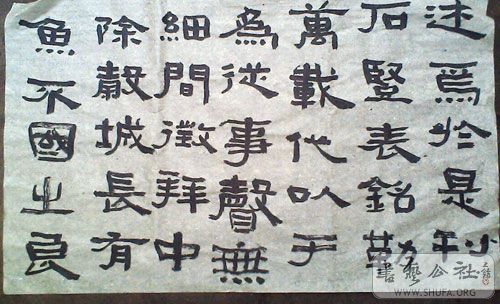 述焉於是刊
石豎表銘勒
萬載代以于
為從事聲無
細間徵拜中
除穀城長有
魚不國之良
書藝公社
WWW.SHUFA.ORG